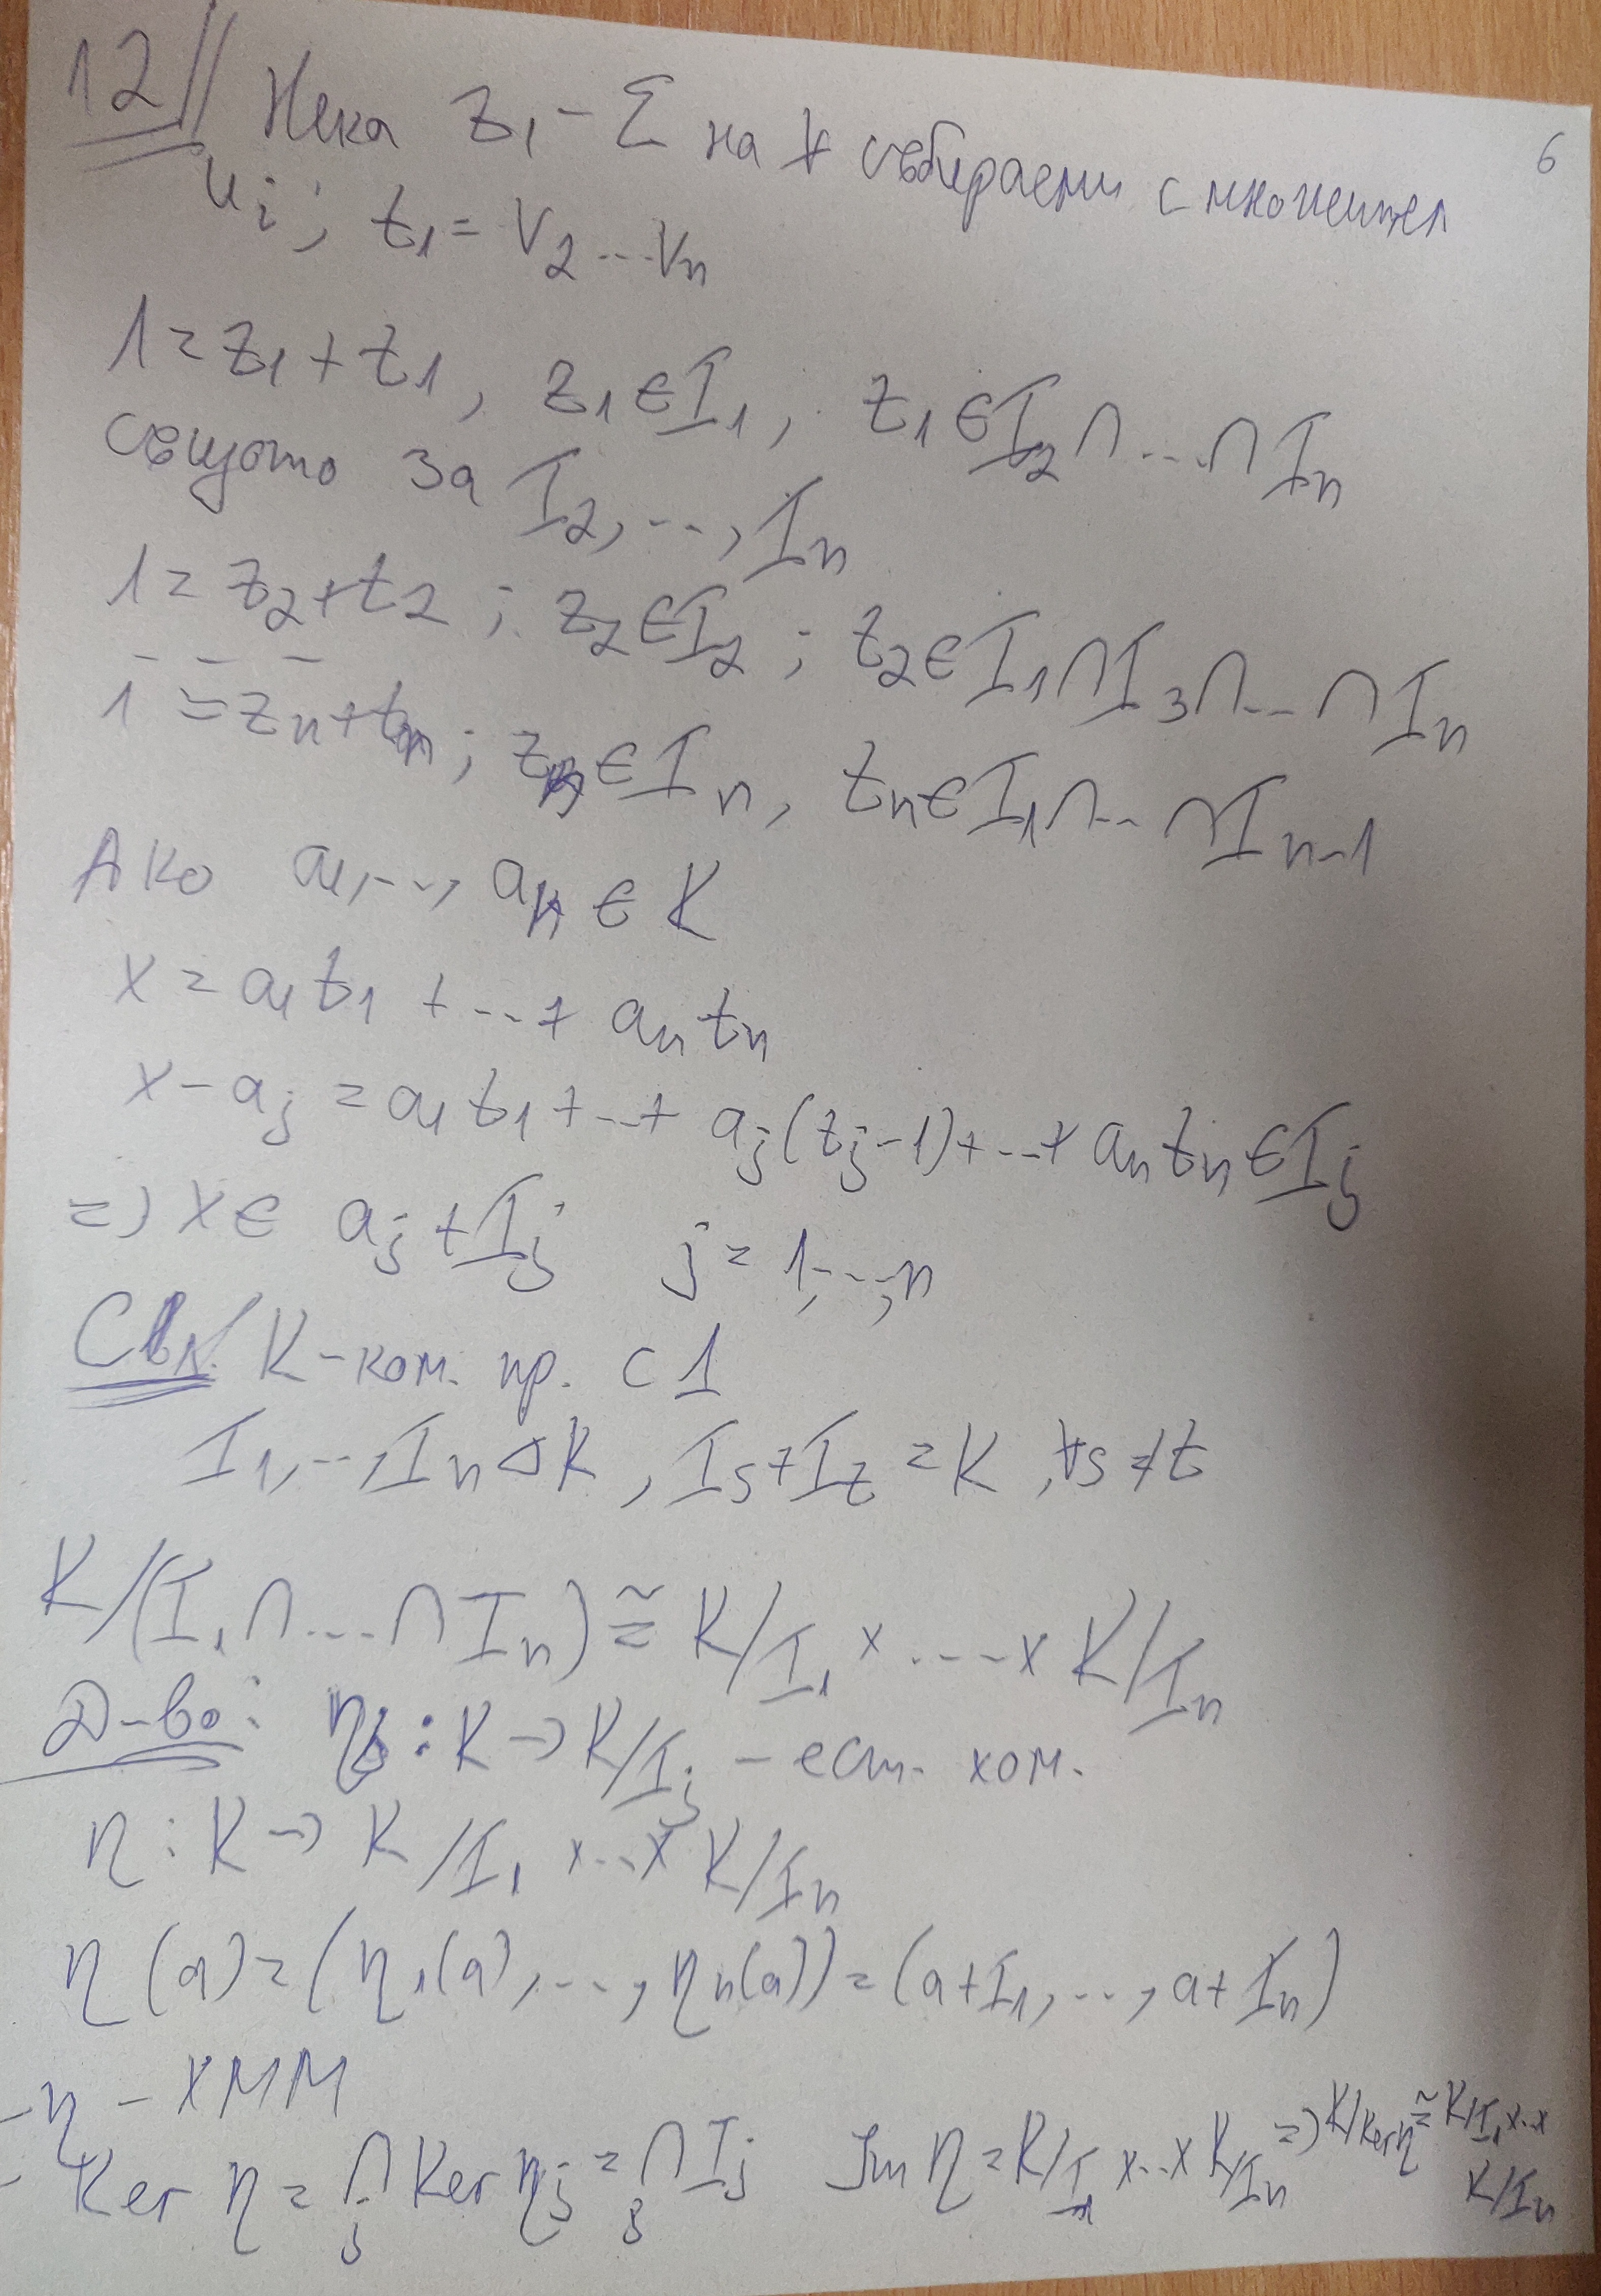 12// Нека z₁ - Σ на ∀ събираеми с множител 6
u_i; t₁ = v₂...v_n
1 = z₁ + t₁, z₁ ∈ I₁; t₁ ∈ I₂ ∩ ... ∩ I_n
същото за I₂, ..., I_n
1 = z₂ + t₂; z₂ ∈ I₂; t₂ ∈ I₁ ∩ I₃ ∩ ... ∩ I_n
- - -
1 = z_n + t_n; z_n ∈ I_n, t_n ∈ I₁ ∩ ... ∩ I_{n-1}
Ако a₁, ..., a_n ∈ K
x = a₁t₁ + ... + a_n t_n
x - a_j = a₁t₁ + ... + a_j(t_j - 1) + ... + a_n t_n ∈ I_j
=> x ∈ a_j + I_j j = 1, ..., n
Сл. K - ком. пр. с 1
I₁, ..., I_n ⊲ K, I_s + I_t = K, ∀s ≠ t
K/(I₁ ∩ ... ∩ I_n) ≅ K/I₁ × ... × K/I_n
Д-во: η_j : K → K/I_j - ест. хом.
η : K → K/I₁ × ... × K/I_n
η(a) = (η₁(a), ..., η_n(a)) = (a + I₁, ..., a + I_n)
η - ХММ
Ker η = ∩_j Ker η_j = ∩_j I_j Im η = K/I₁ × ... × K/I_n => K/Ker η ≅ K/I₁ × ... ×
K/I_n